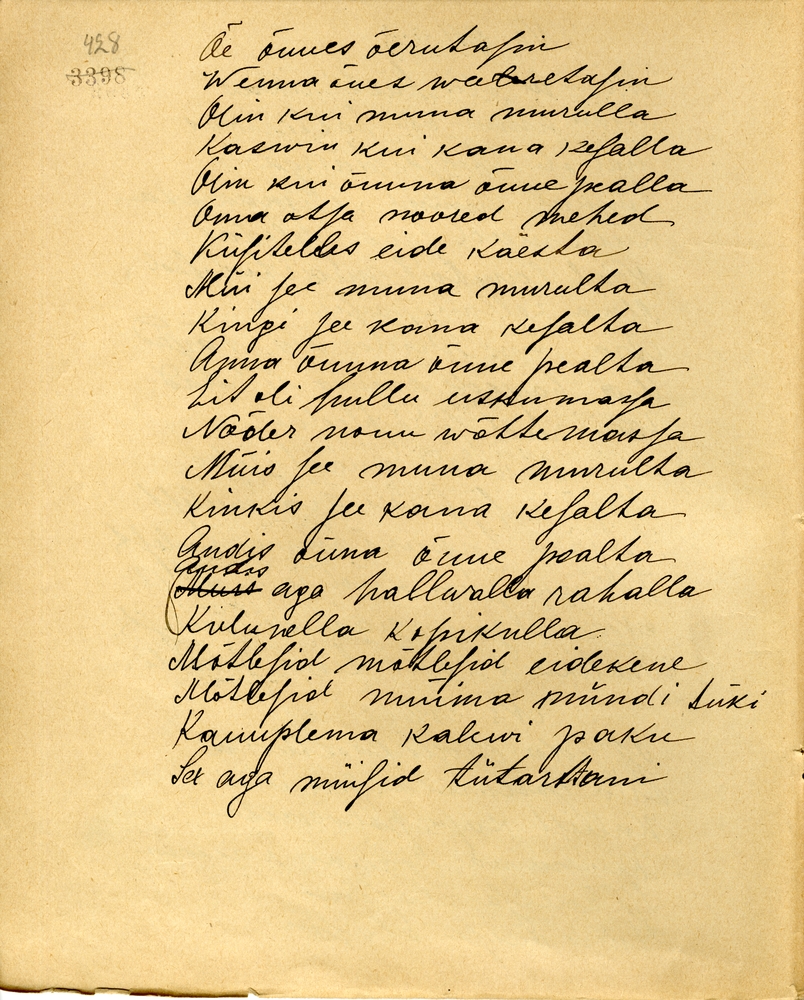 428
3398
Õe õnnes õerutasin
Wenna õues weeretasin
Olin kui muna murulla
Kaswin kui kana kesalla
Olin kui õunna õnne pealla
Oma otsja noored mehed
Küsitelles eide käesta
Müi see muna murulta
Kingi see kana kesalta
Anna õunna õnne pealta
Eit oli hullu uskumassa
Nõder nouu wõttemassa
Müis see muna murulta
Kinkis see kana kesalta
Andis õuna õnne pealta
Andis
Müis aga halluwalla rahalla
Kuluwella kopikulla
Mõtlesid mõtlesid eidekene
Mõtlesid müüma mündi tüki
Kauuplema kalewi paku
See aga müüsid tütartani